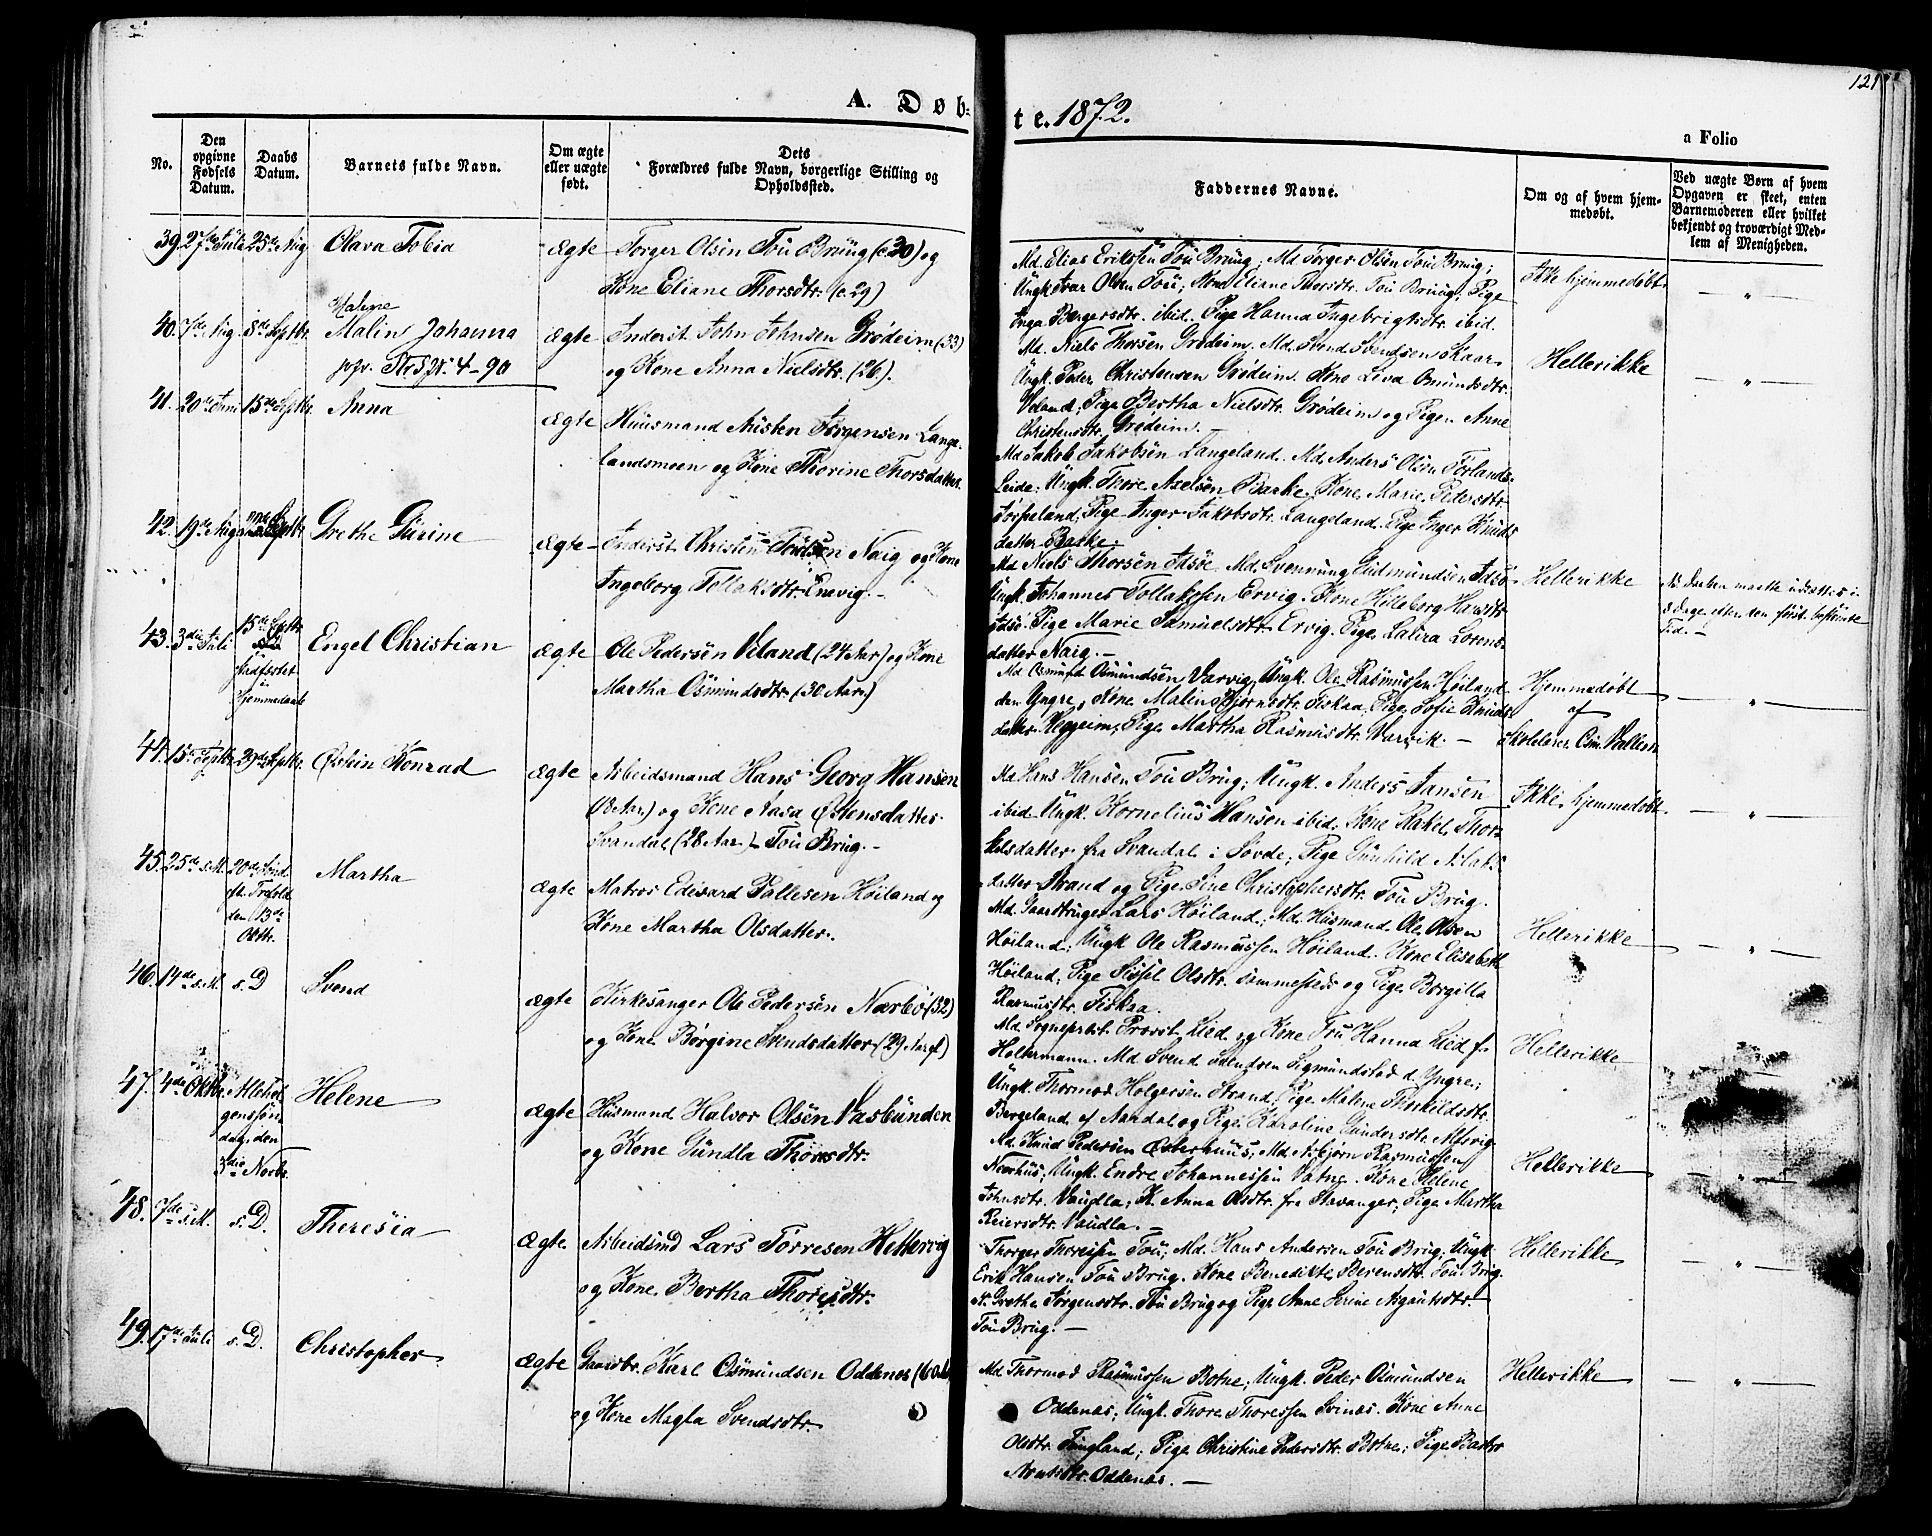 121
A. Døb-
te. 1872.
a Folio
No.
Den
opgivne
Fødsels
Datum.
Daabs
Datum.
Barnets fulde Navn.
Om ægte
eller uægte
født.
Dets
Forældres fulde Navn, borgerlige Stilling og
Opholdssted.
Faddernes Navne.
Om og af hvem hjem-
medøbt.
Ved uægte Børn af hvem
Opgaven er skeet, enten
Barnemoderen eller hvilket
bekjendt og troværdigt Med-
lem af Menigheden.
39. 27de Juli 25de Aug Olava Tobia ægte Torger Olsen Tou Bruug (c. 30) og
Kone Eliane Thorsdtr. (c. 29)
Md. Elias Eriksen Tou Bruug; Md Torger Olsen Tou Bruug;
Ungk Ivar Olsen Tou; Kone Eliane Thorsdtr. Tou Bruug; Pige
Inga Bergersdtr. ibid. Pige Hanna Ingebrigtsdtr. ibid.
Ikke hjemmedøbt
— " —
Malene
40. 7de Aug. 8de Septbr. Malin Johanna ægte Inderst John Johnsen Grødeim (33)
og Kone Anna Nielsdtr. (26).
4-90
Md. Niels Thorsen Grødeim. Md. Svend Svendsen Skaar
Ungk. Peder Christensen Grødeim. Kone Liva Osmundsdtr.
Veland; Pige Bertha Nielsdtr. Grødeim og Pigen Anne
Christensdtr. Grødeim. —
Hellerikke
— " —
41. 20de Juni 15de Septbr. Anna ægte Huusmand Austen Jørgensen Lange-
landsmoen og Kone Thorine Thorsdatter.
Md Jakob Jakobsen Langeland. Md. Anders Olsen Førlands-
Leide; Ungk. Thore Axelsen Barke, Kone Marie Pedersdtr.
Jørpeland, Pige Inger Jakobsdtr. Langeland. Pige Inger Knuds-
datter Barke.
42. 19de Aug Septbr Grethe Gurine ægte Inderst Christen Toulsen Naig og Kone
Ingeborg Tollaksdtr.
Md Niels Thorsen Idsøe. Md. Svennung Gudmundsen Idsø
Ungk. Johannes Tollaksen Ervig. Kone Helleborg Hansdtr.
Idsø. Pige Marie Samuelsdtr. Ervig. Pige Laura Lorens-
datter Naig. —
Hellerikke
8 Dage efter den først bestemte
Tid. —
43. 3die Juli 15de Septbr
Stadfæstet
Hjemmedaab
Engel Christian ægte Ole Pedersen Veland (24 Aar) og Kone
Martha Osmundsdtr. (30 Aar.)
Md Osmund Osmundsen Varvig, Ungk. Ole Rasmussen Høiland
den Yngre, Kone Malin Bjørnsdtr. Fiskaa, Pige Sofie Knuds-
datter Heggeim, Pige Martha Rasmusdtr. Varvik. —
Hjemmedøbt
af
Skolelærer Osm.
— " —
44. 15de Septbr. 29de Septbr. Østein Konrad ægte Arbeidsmand Hans Georg Hansen
(18 Aar) og Kone Aasa Østensdatter
Svandal (28 Aar.) Tou Brug. —
Md Hans Hansen Tou Brug; Ungk. Anders Jansen
ibid. Ungk. Kornelius Hansen ibid; Kone Rakel Thor-
kelsdatter fra Svandal i Søvde; Pige Gunhild Aslaks-
datter Strand og Pige Sine Christophersdtr. Tou Brug.
Ikke hjemmedøbt.
— " —
45. 25de s.M. 20de Sønd.
eft. Trefold.
den 13de
Oktbr.
Martha ægte Matros Edward Pallesen Høiland og
Kone Martha Olsdatter.
Md. Gaardbruger Lars Høiland; Md. Husmand Ole Olsen
Høiland; Ungk Ole Rasmussen Høiland. Kone Elisabeth
Høiland; Pige Sissel Olsdtr. sammesteds og Pige Borgilla
Rasmusdtr. Fiskaa.
Hellerikke
— " —
46. 14de s.M. s. D Svend ægte Kirkesanger Ole Pedersen Nærbø (32)
og Kone Børgine Svendsdatter (29 Aar gl.)
Md. Sognepræst Provst Lied og Kone Fru Hanna Lied f.
Holtermann. Md Svend Svendsen Sigmundstad d. Yngre;
Ungk. Thormod Holgersen Strand, Pige Malene Thorkildsdtr.
Bergeland af Aardal og Pige Karoline Gundersdtr. Alsvig
Hellerikke
47. 4de Oktbr. Allehel-
genssøn-
dag, den
3die Novbr.
Helene ægte Husmand Halvor Olsen Vasbunden
og Kone Gundla Thorsdtr.
Md. Knud Pedersen Østerhuus; Md. Asbjørn Rasmussen
Norhus; Ungk. Endre Johannessen Vatne. Kone Helene
Johnsdtr. Vaudla; K. Anna Olsdtr. fra Stavanger; Pige Martha
Reiersdtr. Vaudla. —
Hellerikke
— " —
48. 7de s.M. s. D. Theresia ægte Arbeidsmd Lars Torresen Hettervig
og Kone Bertha Thoresdtr.
Thorger Thoresen Tou; Md. Hans Andersen Tou Brug; Ungk
Erik Hansen Tou Brug. Kone Benedikte Berensdtr. Tou Brug.
K. Grethe Jørgensdtr. Tou Brug og Pige Anne Serine Asgautsdtr.
Tou Brug. —
Hellerikke
— " —
49. 17de Juli s. D. Christopher ægte Gaardbr. Karl Osmundsen Oddenes
og Kone Magla Svendsdtr.
Md Thormod Rasmussen Botne; Ungk. Peder Osmundsen
Oddenes; Ungk. Thore Thoressen Svines. Kone Anne
Olsdtr. Tungland; Pige Christine Pedersdtr. Botne; Pige
Oddenes. —
Hellerikke
— " —